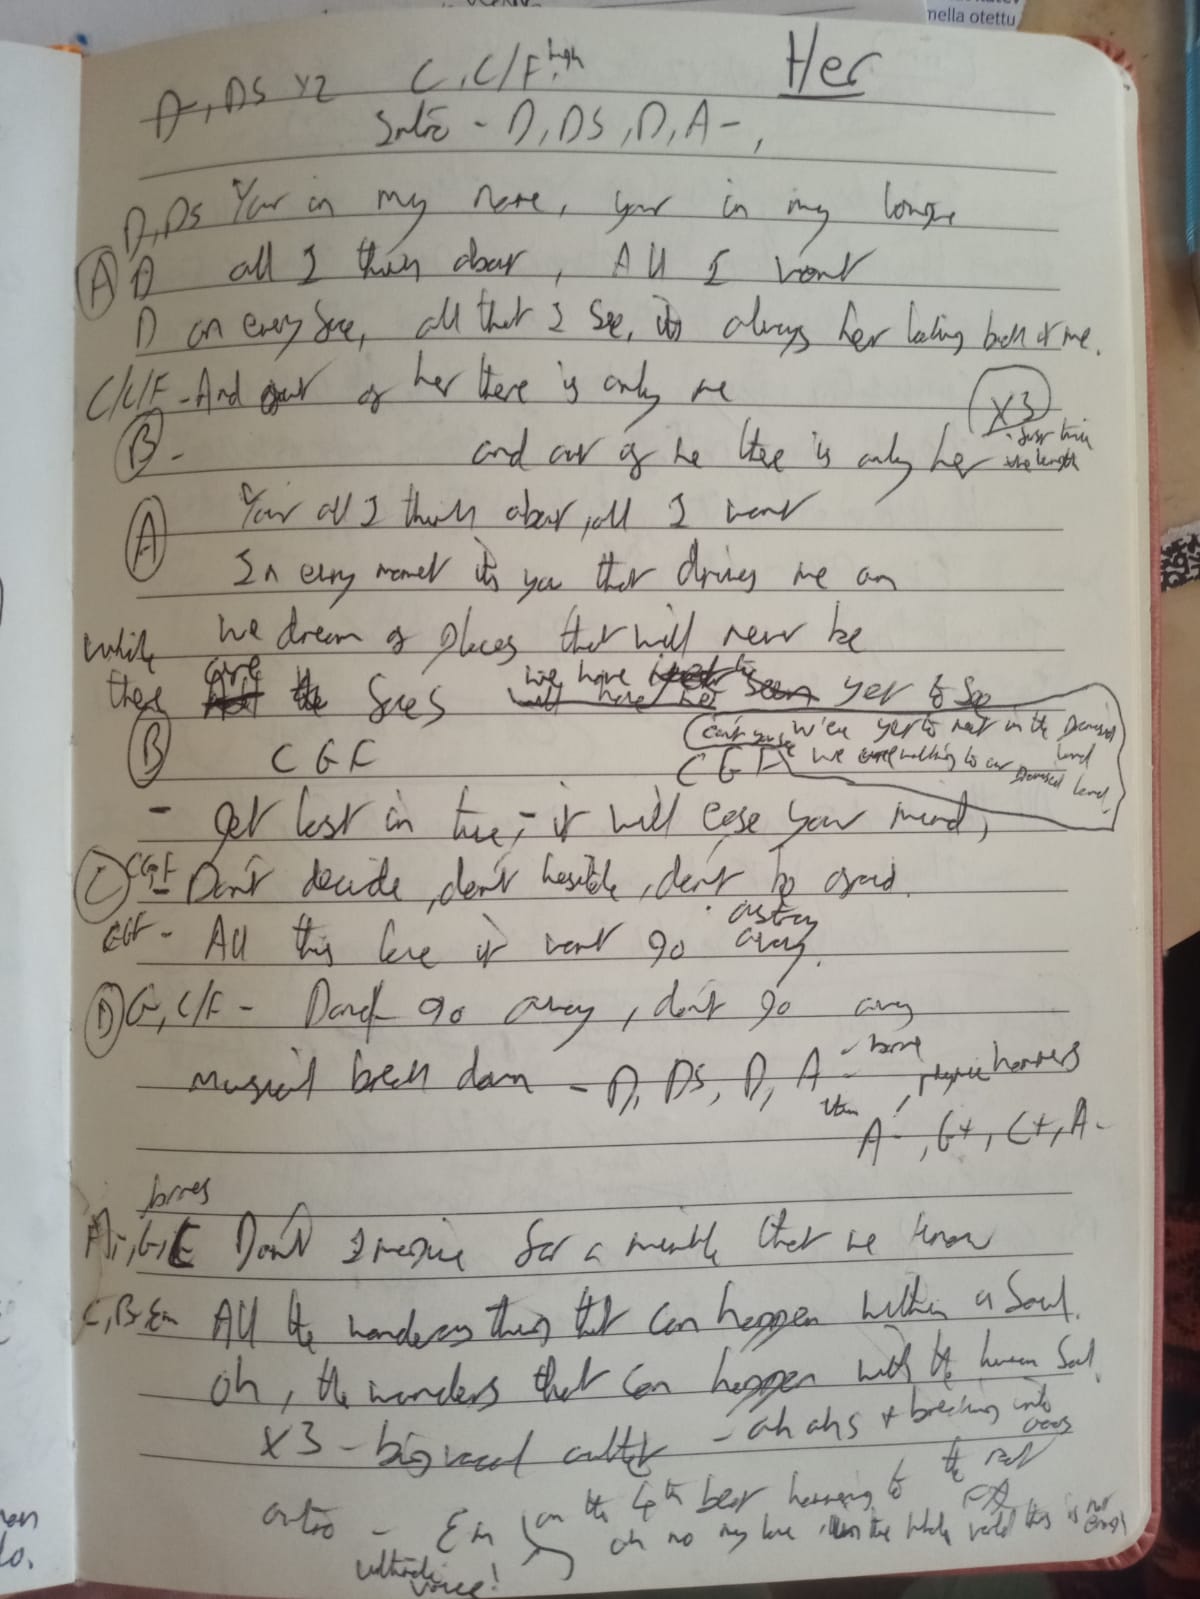 mella otettu
Her
D-, DS x2 C, C/F high
Intro - D, DS, D, A-,
D, DS Your in my name, your in my lounge
A D all I think about, All I want
D on every face, all that I see, its always her looking back at me.
C/C/F - And out of her there is only me
x3
B - and out of me there is only her
- just twice the length
A Your all I think about, all I want
In every moment its you that drives me on
while we dream of places that will never be
there are the faces we have yet to see
B C G F
w'ere yet to meet in the Promised land
C G F we are walking to our promised land
- get lost in time, - it will ease your mind,
C CGF - Don't decide, don't hesitate, don't be afraid.
CGF - All this love it wont go astray
away.
D G, C/F - Don't go away, don't go away
musical break down - D, DS, D, A -
then hammers
A-, G+, C+, A-
A-, G, C Don't Imagine for a minute that we know
C, B, Em All the wonderous things that can happen within a Soul.
oh, the wonders that can happen with the human Soul.
x3 - big vocal - ah ahs + breaking into
outro - Em on the 4th beat hammering to the root
oh no my love in the whole world this is not enough
voice!